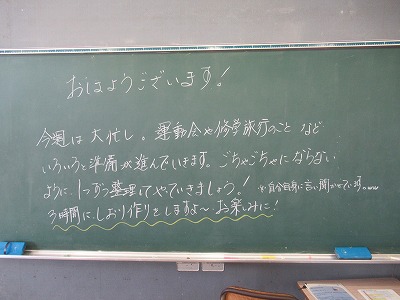 おはようございます!
今週は大忙し。運動会や修学旅行のこと など
いろいろと準備が進んでいきます。ごちゃごちゃにならない
ように、1つずつ整理してやっていきましょう! ※自分自身に言い聞かせています。www
3時間に、しおり作りをしますよ〜お楽しみに!